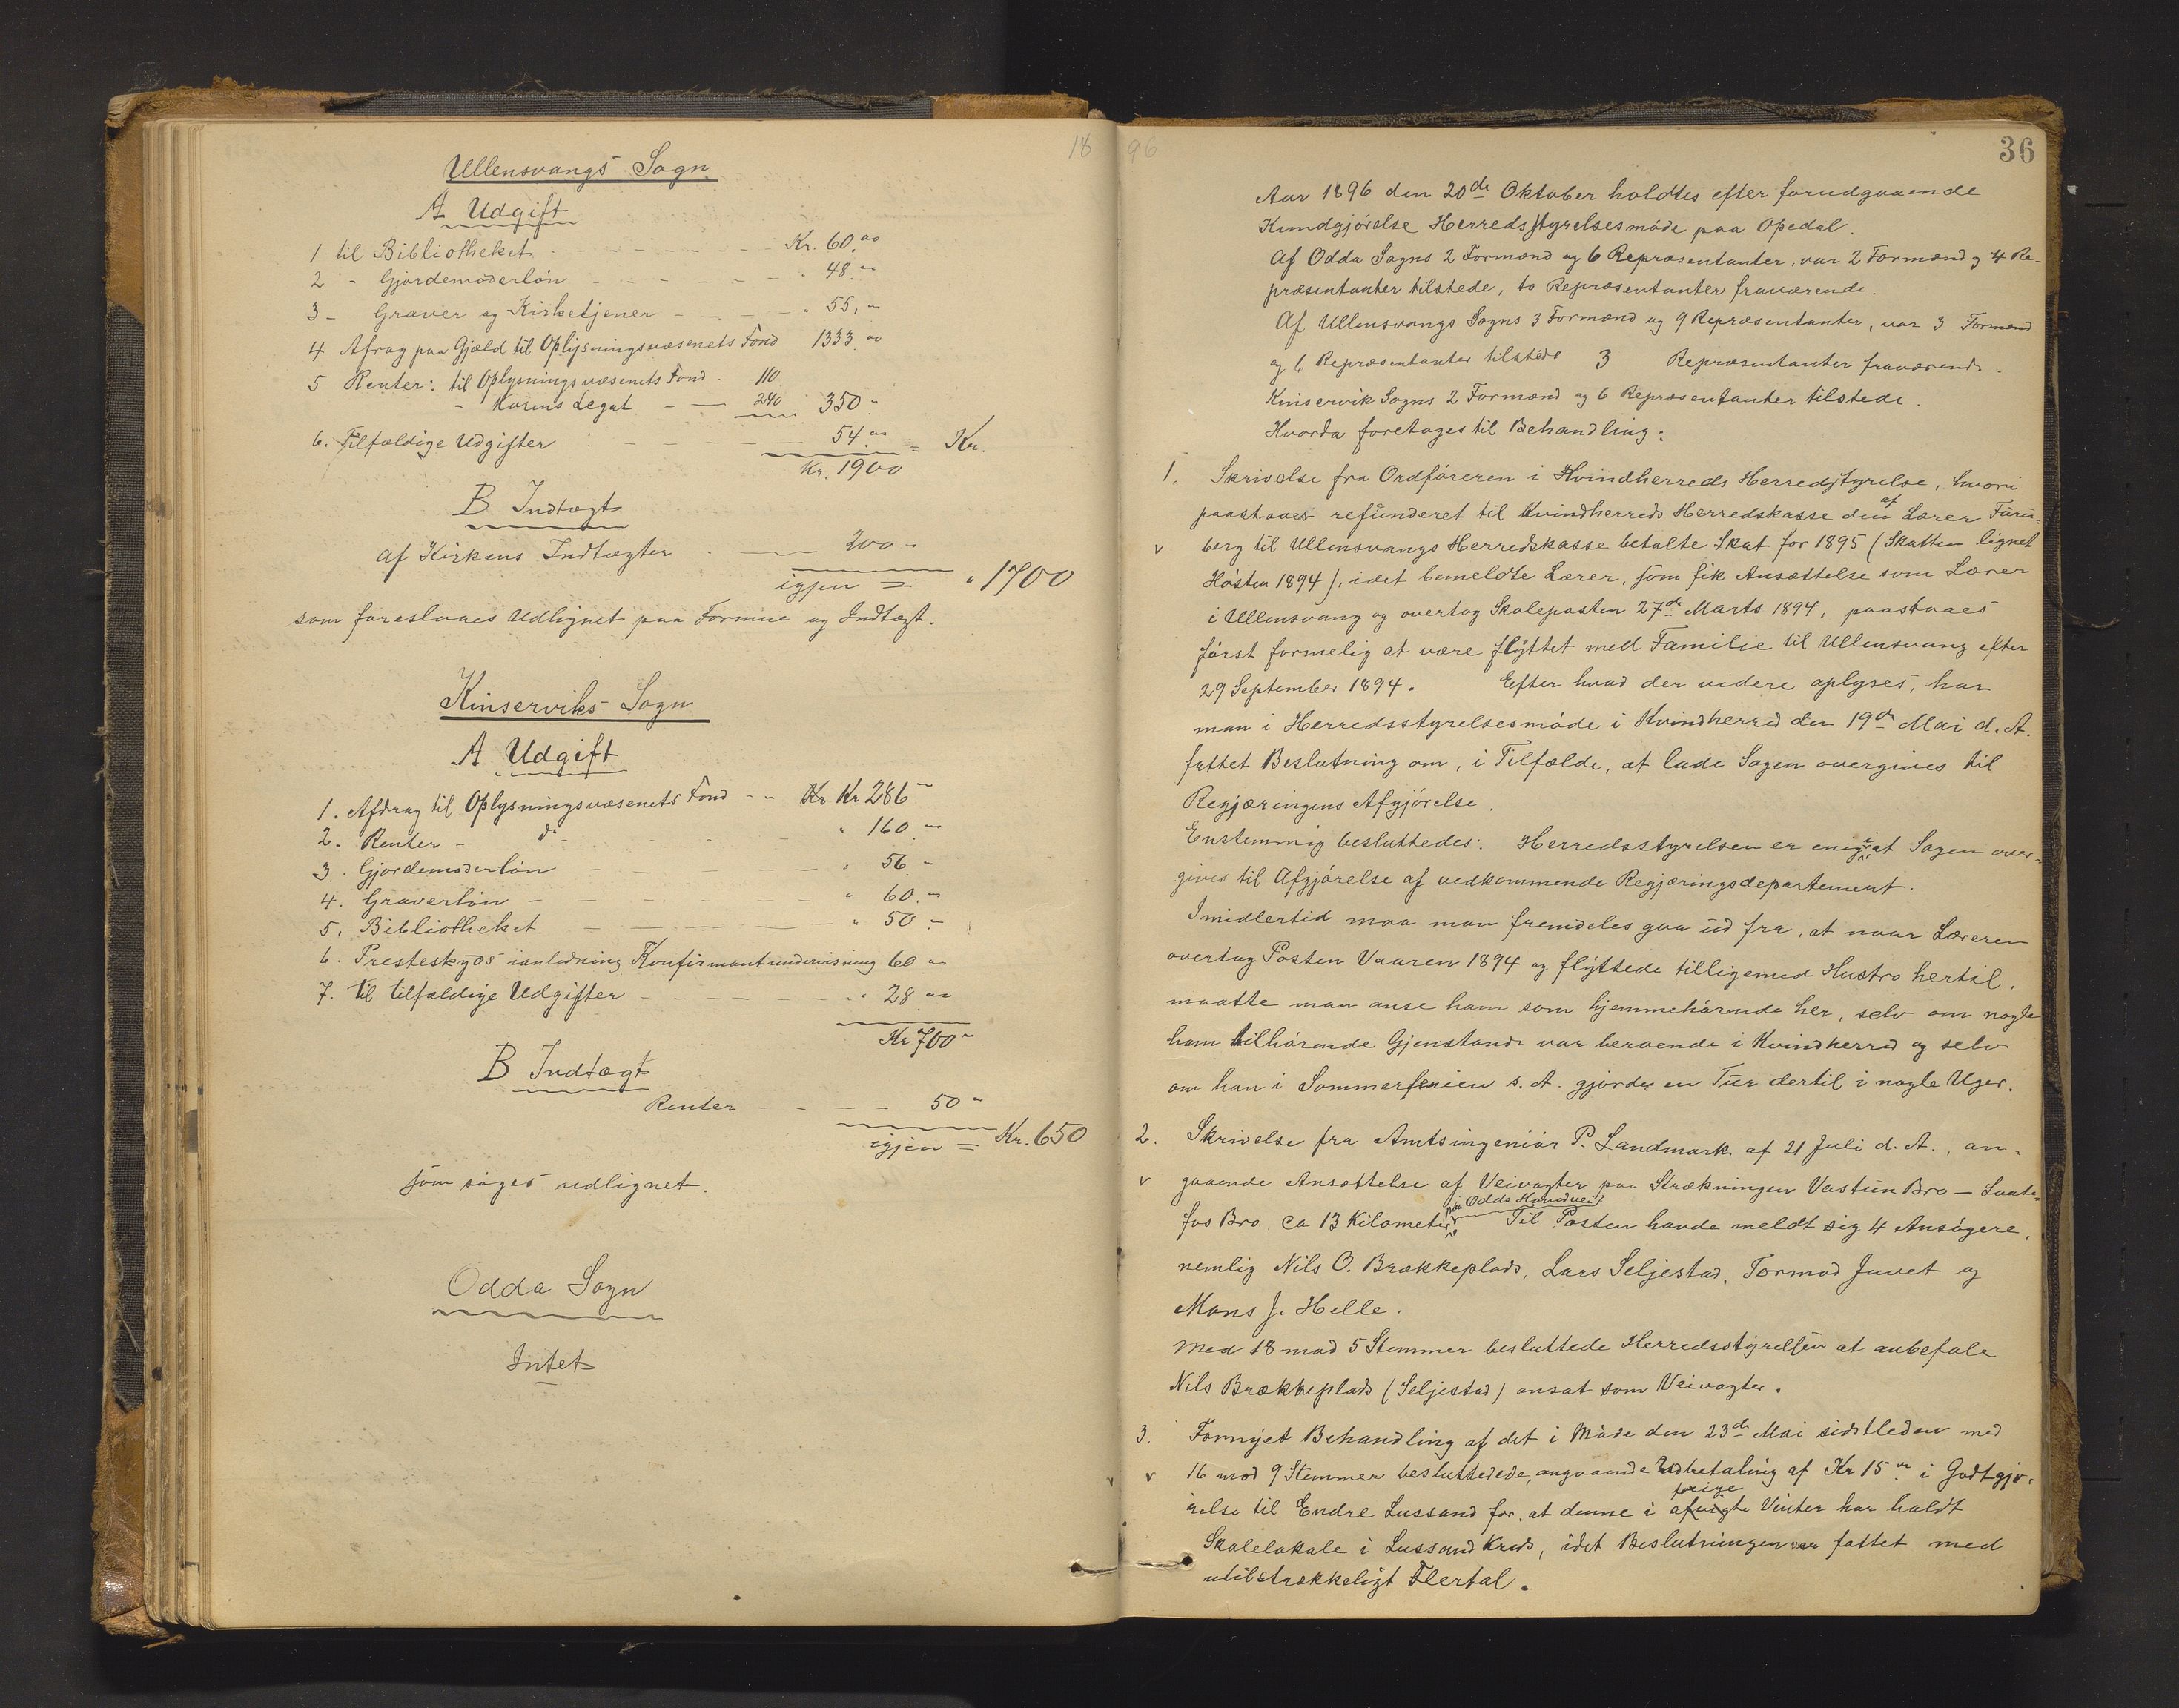 18
Ullensvangs Sogn
A Udgift
1 til Bibliotheket - - - - - Kr. 60.00
2 - Gjordemoderløn - - - - - " 48.00
3 - Graver og Kirketjener - - - " 55,00
4 Afrag paa Gjæld til Oplysningsvæsenets Fond 1333.00
5 Renter: til Oplysningsvæsenets Fond - 110
- Legat - - 240 350 -
6. Tilfældige Udgifter - - - - 54.00 = Kr.
Kr. 1900
B Indtægt
af Kirkens Indtægter - - 200 -
igjen = " 1700
som foreslaaes Udlignet paa Formue og Indtægt.
Kinserviks Sogn
A Udgift
1. Afdrag til Oplysningsvæsenets Fond - - Kr Kr 286 -
2. Renter - do - - - - " 160 -
3. Gjordemoderløn - - - - " 56 -
4. Graverløn - - - - - " 60.-
5. Bibliotheket - - - - " 50 -
6. Presteskyds ianledning Konfirmantundervisning 60 -
7. til tilfældige Udgifter - - - - " 28 00
Kr 700 -
B Indtægt
Renter - - - - 50 -
igjen = Kr. 650
som søges udlignet.
Odda Sogn
Intet
96
36
Aar 1896 den 20de Oktober holdtes efter forudgaaende
Kundgjørelse Herredsstyrelsesmøde paa Opedal.
Af Odda Sogns 2 Formænd og 6 Repræsentanter, var 2 Formænd og 4 Re-
præsentanter tilstede, to Repræsentanter fraværende.
Af Ullensvangs Sogns 3 Formænd og 9 Repræsentanter, var 3 Formænd
og 6 Repræsentanter tilstede 3 Repræsentanter fraværende.
Kinservik Sogns 2 Formænd og 6 Repræsentanter tilstede.
Hvorda foretages til Behandling:
1. Skrivelse fra Ordføreren i Kvindherreds Herredsstyrelse, hvori
paastaaes refunderet til Kvindherreds Herredskasse den af Lærer Furu-
v berg til Ullensvangs Herredskasse betalte Skat for 1895 (Skatten lignet
Høsten 1894), idet bemeldte Lærer, som fik Ansættelse som Lærer
i Ullensvang og overtog Skoleposten 27de Marts 1894, paastaaes
først formelig at være flyttet med Familie til Ullensvang efter
29 September 1894. Efter hvad der videre oplyses, har
man i Herredsstyrelsesmøde i Kvindherred den 19de Mai d. A.
fattet Beslutning om, i Tilfælde, at lade Sagen overgives til
Regjæringens Afgjørelse.
Enstemmig besluttedes: Herredsstyrelsen er enig i at Sagen over-
gives til Afgjørelse af vedkommende Regjæringsdepartement.
Imidlertid maa man fremdeles gaa ud fra, at naar Læreren
overtog Posten Vaaren 1894 og flyttede tilligemed Hustro hertil,
maatte man anse ham som hjemmehørende her, selv om nogle
ham tilhørende Gjenstande var beroende i Kvindherred og selv
om han i Sommerferien s. A. gjorde en Tur dertil i nogle Uger.
2. Skrivelse fra Amtsingeniør P. Landmark af 21 Juli d. A., an-
v gaaende Ansættelse af Veivogter paa Strækningen Vastun Bro – Laate-
fos Bro ca 13 Kilometer paa Odda Hovedvei. Til Posten havde meldt sig 4 Ansøgere,
nemlig Nils O. Brækkeplads, Lars Seljestad, Tormod Juvet og
Mons J. Helle.
Med 18 mod 5 Stemmer besluttede Herredsstyrelsen at anbefale
Nils Brækkeplads (Seljestad) ansat som Veivogter.
3. Fornyet Behandling af det i Møde den 23de Mai sidstleden med
v v 16 mod 9 Stemmer besluttedede, angaaende Udbetaling af Kr 15 00 i Godtgjø-
relse til Endre Lussand for, at denne i afvigte forige Vinter har holdt
Skolelokale i Lussand Kreds, idet Beslutningen var fattet med
utilstrækkeligt Flertal.